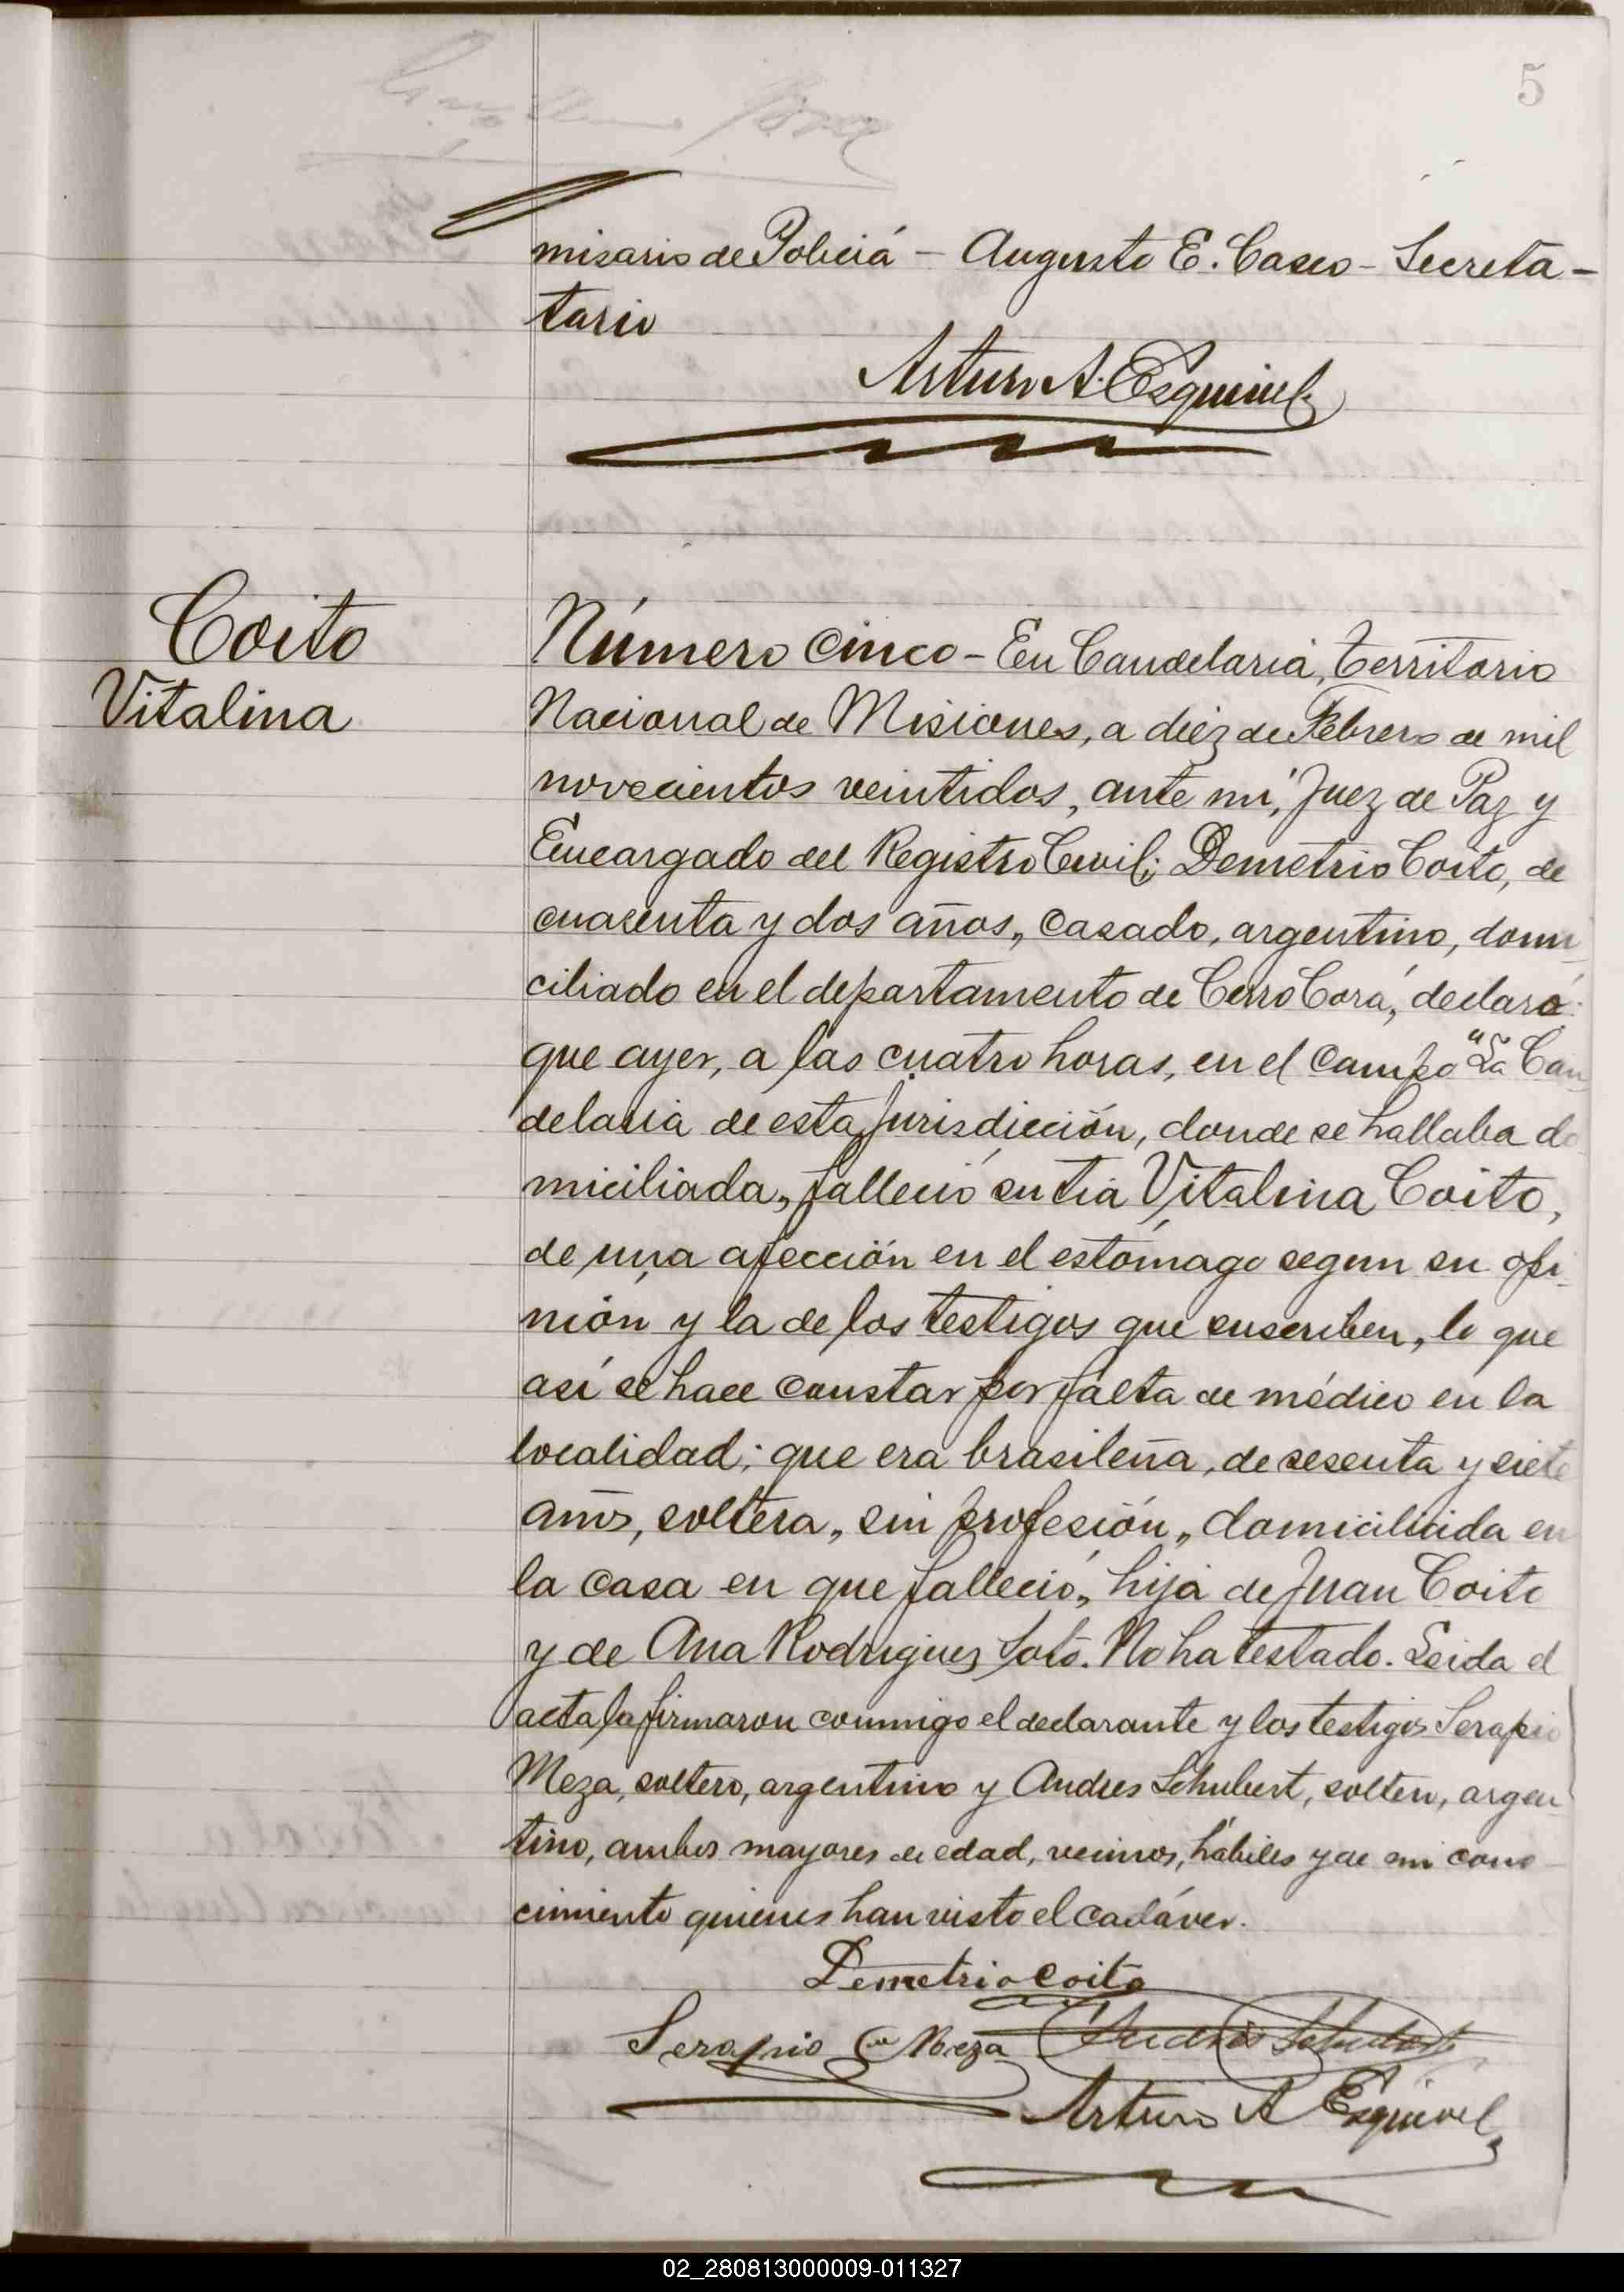 5
misario de Policiá - Augusto E. Casco - Secreta-
tario
Arturo A. Esquivel
Coito
Vitalina
Número cinco - En Candelaria, territorio
Nacional de Misiones, a diéz de Febrero de mil
novecientos veintidos, ante mí, Juez de Paz y
Encargado del Registro Civil; Demetrio Coito, de
cuarenta y dos años, casado, argentino, domi
ciliado en el departamento de Cerro Corá, declaró:
que ayer, a las cuatro horas, en el campo "La Can
delaria de esta jurisdicción, donde se hallaba do
miciliada, falleció su tia Vitalina Coito,
de una afección en el estómago segun su opi
nión y la de los testigos que suscriben, lo que
así se hace constar por falta de médico en la
localidad; que era brasileña, de sesenta y siete
años, soltera, sin profesión, domiciliada en
la casa en que falleció, hija de Juan Coito
y de Ana Rodrigues Soto. No ha testado. Leida el
acta la firmaron conmigo el declarante y los testigos Serapio
Meza, soltero, argentino y Andres Schubert, soltero, argen
tino, ambos mayores de edad, vecinos, hábiles y de mi cono-
cimiento quienes han visto el cadáver.
Demetrio Coito
Serapio Meza Andrés Schubert
Arturo A Esquivel
02_280813000009-011327